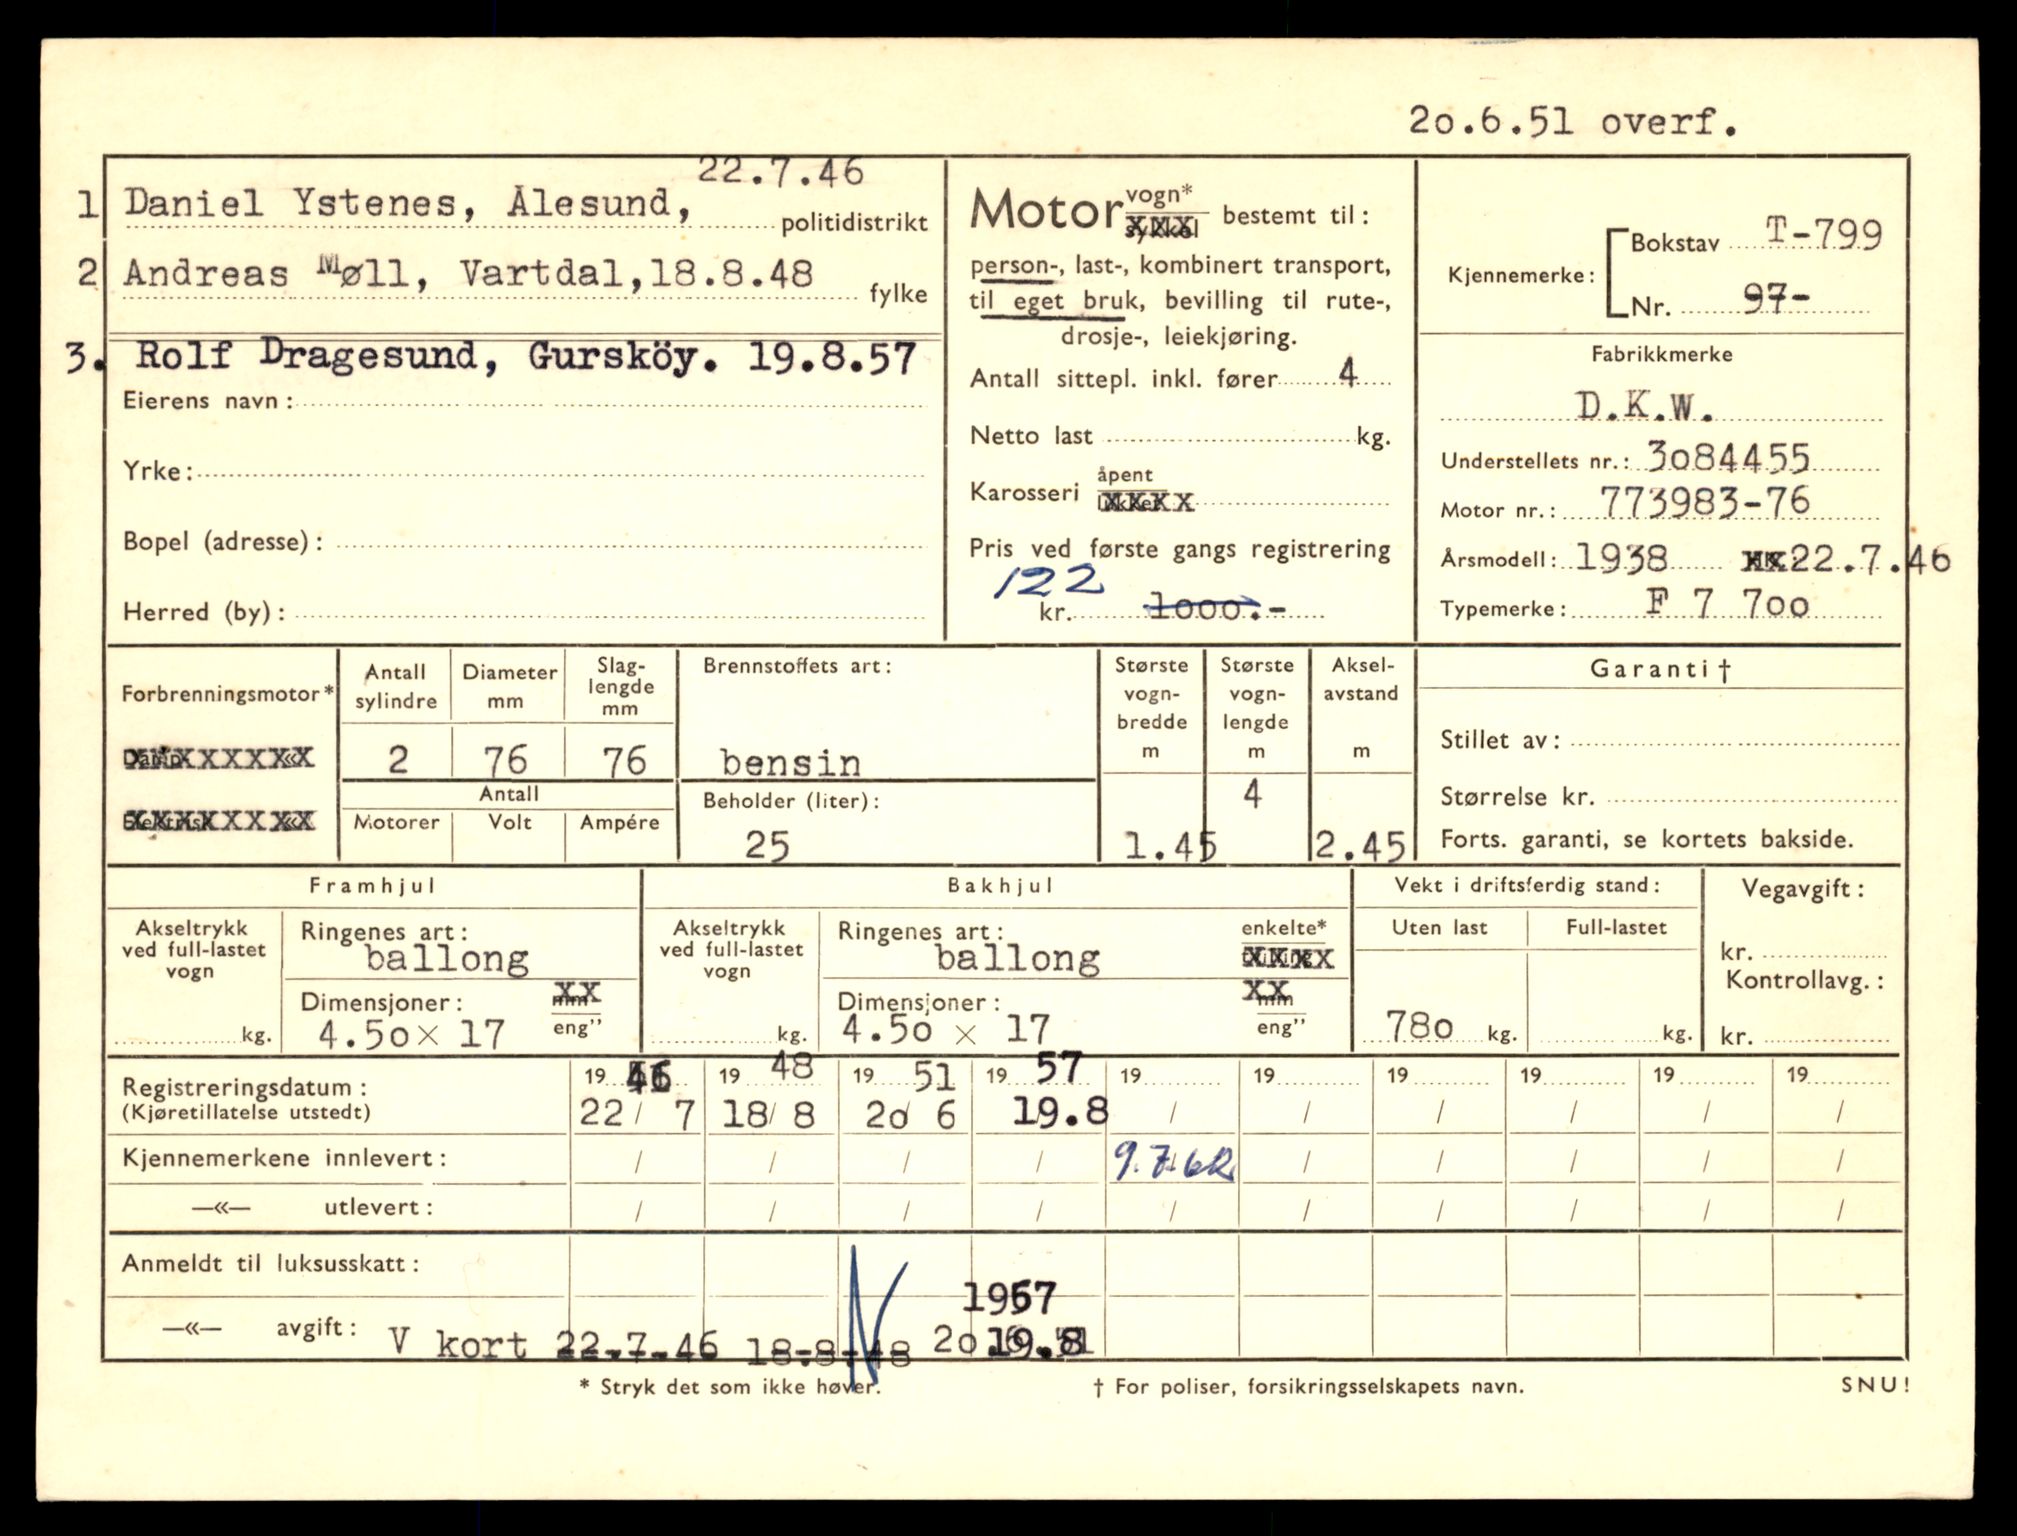 2o.6.51 overf.
22.7.46
1 Daniel Ystenes, Ålesund, politidistrikt
2 Andreas Møll, Vartdal,18.8.48 fylke
3. Rolf Dragesund, Gursköy. 19.8.57
Eierens navn:
Yrke:
Bopel (adresse):
Herred (by):
Motor vogn* bestemt til:
xxx
person-, last-, kombinert transport,
til eget bruk, bevilling til rute-,
drosje-, leiekjøring.
Antall sittepl. inkl. fører 4
Netto last kg.
Karosseri åpent
xxxx
Pris ved første gangs registrering
122
kr. 1ooo.-
Kjennemerke: Bokstav T-799
Nr. 97-
Fabrikkmerke
D.K.W.
Understellets nr.: 3o84455
Motor nr.: 773983-76
Årsmodell: 1938 xx22.7.46
Typemerke: F 7 7oo
Forbrenningsmotor*
Antall sylindre
Diameter mm
Slag-lengde mm
2 76 76
Antall
Motorer Volt Ampére
Brennstoffets art:
bensin
Beholder (liter):
25
Største vogn-bredde m
1.45
Største vogn-lengde m
4
Aksel-avstand m
2.45
Garanti †
Stillet av:
Størrelse kr.
Forts. garanti, se kortets bakside.
Framhjul
Akseltrykk ved full-lastet vogn
kg.
Ringenes art:
ballong
Dimensjoner: xx
4.5o × 17 eng”
Bakhjul
Akseltrykk ved full-lastet vogn
kg.
Ringenes art: enkelte*
ballong xxxx
Dimensjoner: xx
4.5o × 17 eng”
Vekt i driftsferdig stand:
Uten last Full-lastet
78o kg. kg.
Vegavgift:
kr.
Kontrollavg.:
kr.
Registreringsdatum: 19 46 19 48 19 51 19 57 19 19 19 19 19 19
(Kjøretillatelse utstedt) 22/ 7 18/ 8 2o/ 6 19.8 / / / / / /
Kjennemerkene innlevert: / / / / 9.7.62 / / / / /
—«— utlevert: / / / / / / / / / /
Anmeldt til luksusskatt:
1957
—«— avgift: V kort 22.7.46 18.8.48 2o 19.8
* Stryk det som ikke høver.
† For poliser, forsikringsselskapets navn.
SNU!